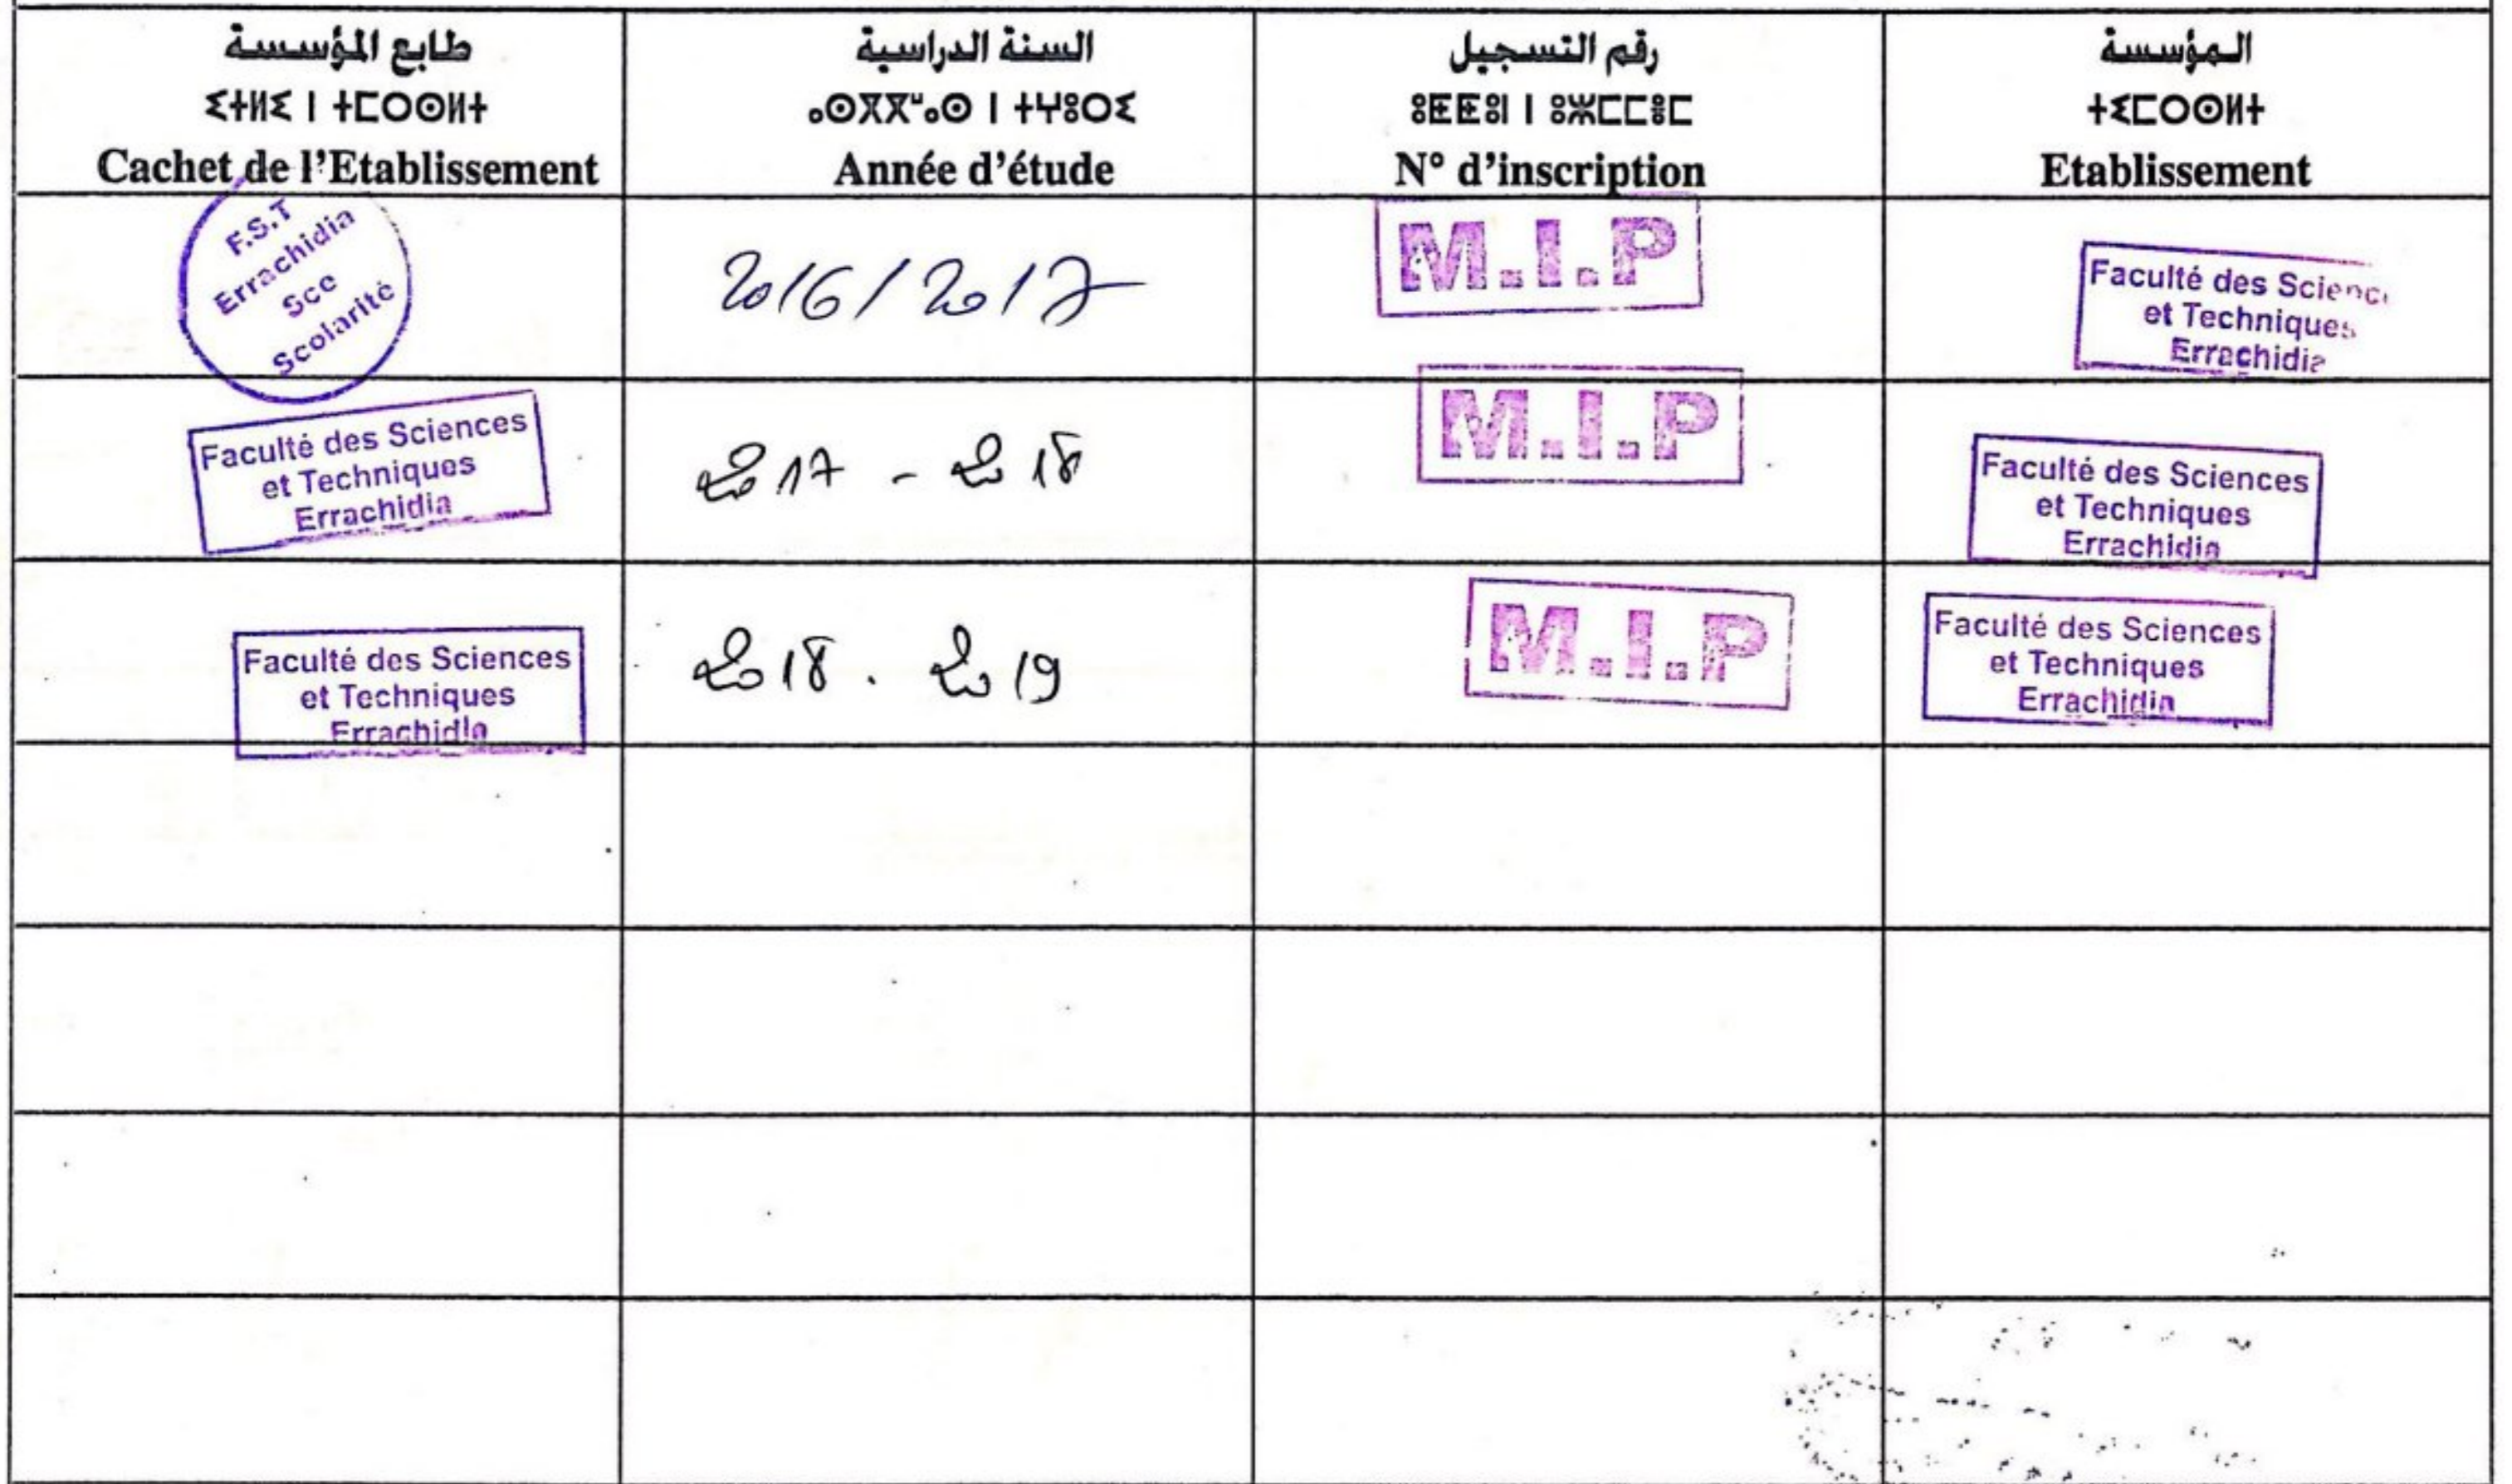 طابع المؤسسة
ⵉⵜⵍⵉ ⵏ ⵜⵎⵔⵙⵍⵜ
Cachet de l'Etablissement
السنة الدراسية
ⴰⵙⴳⴳⵯⴰⵙ ⵏ ⵜⵖⵓⵔⵉ
Année d'étude
رقم التسجيل
ⵓⵟⵟⵓⵏ ⵏ ⵓⵣⵎⵎⵓⵎ
N° d'inscription
المؤسسة
ⵜⵉⵎⵔⵙⵍⵜ
Etablissement
F.S.T
Errachidia
Sce
Scolarité
2016/2017
M.I.P
Faculté des Scienc
et Techniques
Errachidia
Faculté des Sciences
et Techniques
Errachidia
2017 - 2018
M.I.P
Faculté des Sciences
et Techniques
Errachidia
Faculté des Sciences
et Techniques
Errachidia
2018 . 2019
M.I.P
Faculté des Sciences
et Techniques
Errachidia